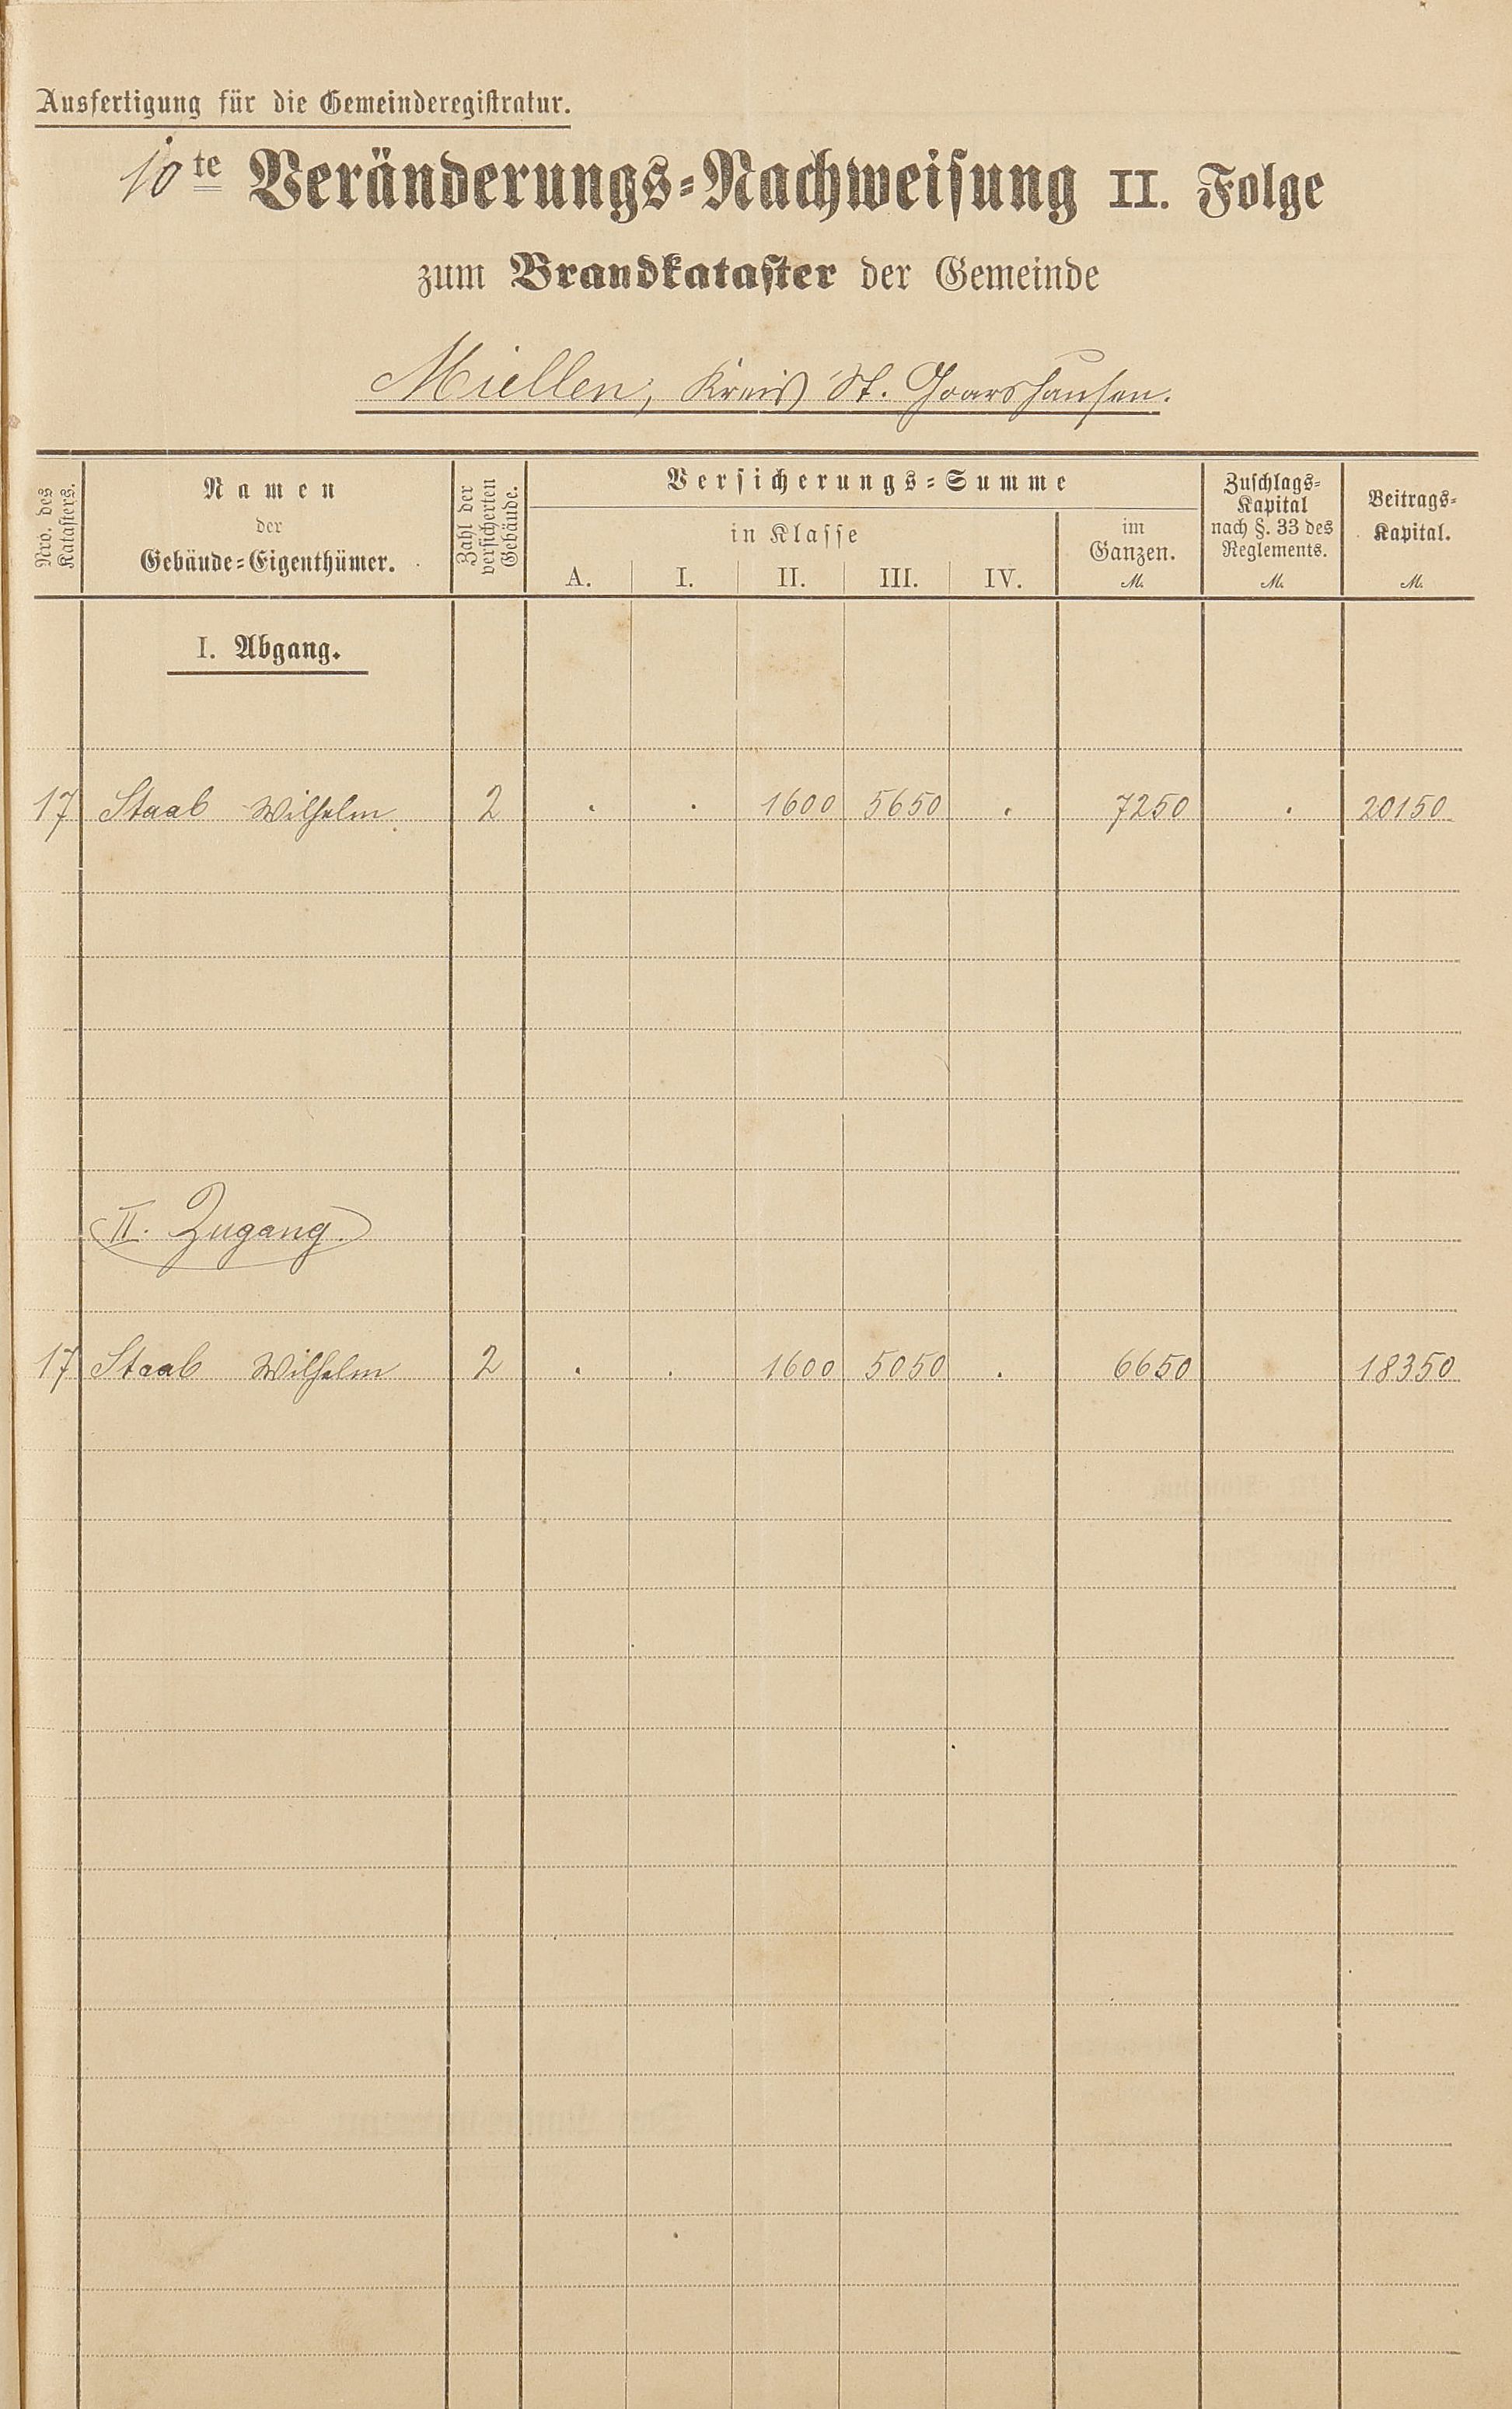 Ausfertigung für die Gemeinderegistratur.
10te Veränderungs-Nachweisung II. Folge
zum Brandkataster der Gemeinde
Miellen, Kreis St. Goarshausen.
Nro. des Katasters.
Namen
der
Gebäude-Eigenthümer.
Zahl der versicherten Gebäude.
Versicherungs-Summe
in Klasse
A. I. II. III. IV.
im
Ganzen.
M.
Zuschlags-
Kapital
nach §. 33 des
Reglements.
M.
Beitrags-
Kapital.
M.
I. Abgang.
17 Staab Wilhelm 2 . . 1600 5650 . 7250 . 20150
II. Zugang.
17 Staab Wilhelm 2 . . 1600 5050 . 6650 18350